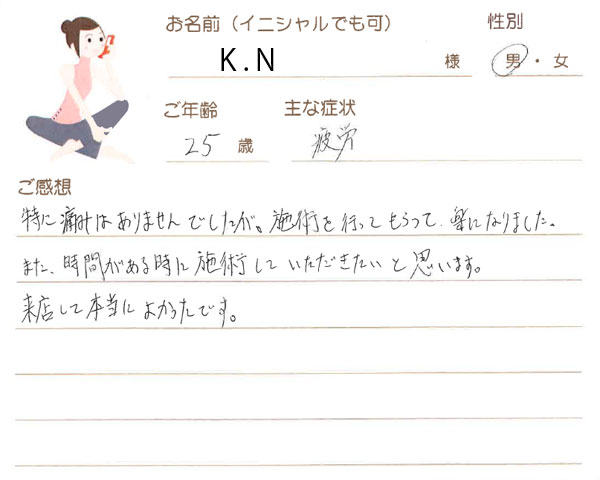 お名前（イニシャルでも可） 性別
K.N 様 男・女
ご年齢 主な症状
25 歳 疲労
ご感想
特に痛みはありませんでしたが。施術を行ってもらって、楽になりました。
また、時間がある時に施術していただきたいと思います。
来店して本当によかったです。